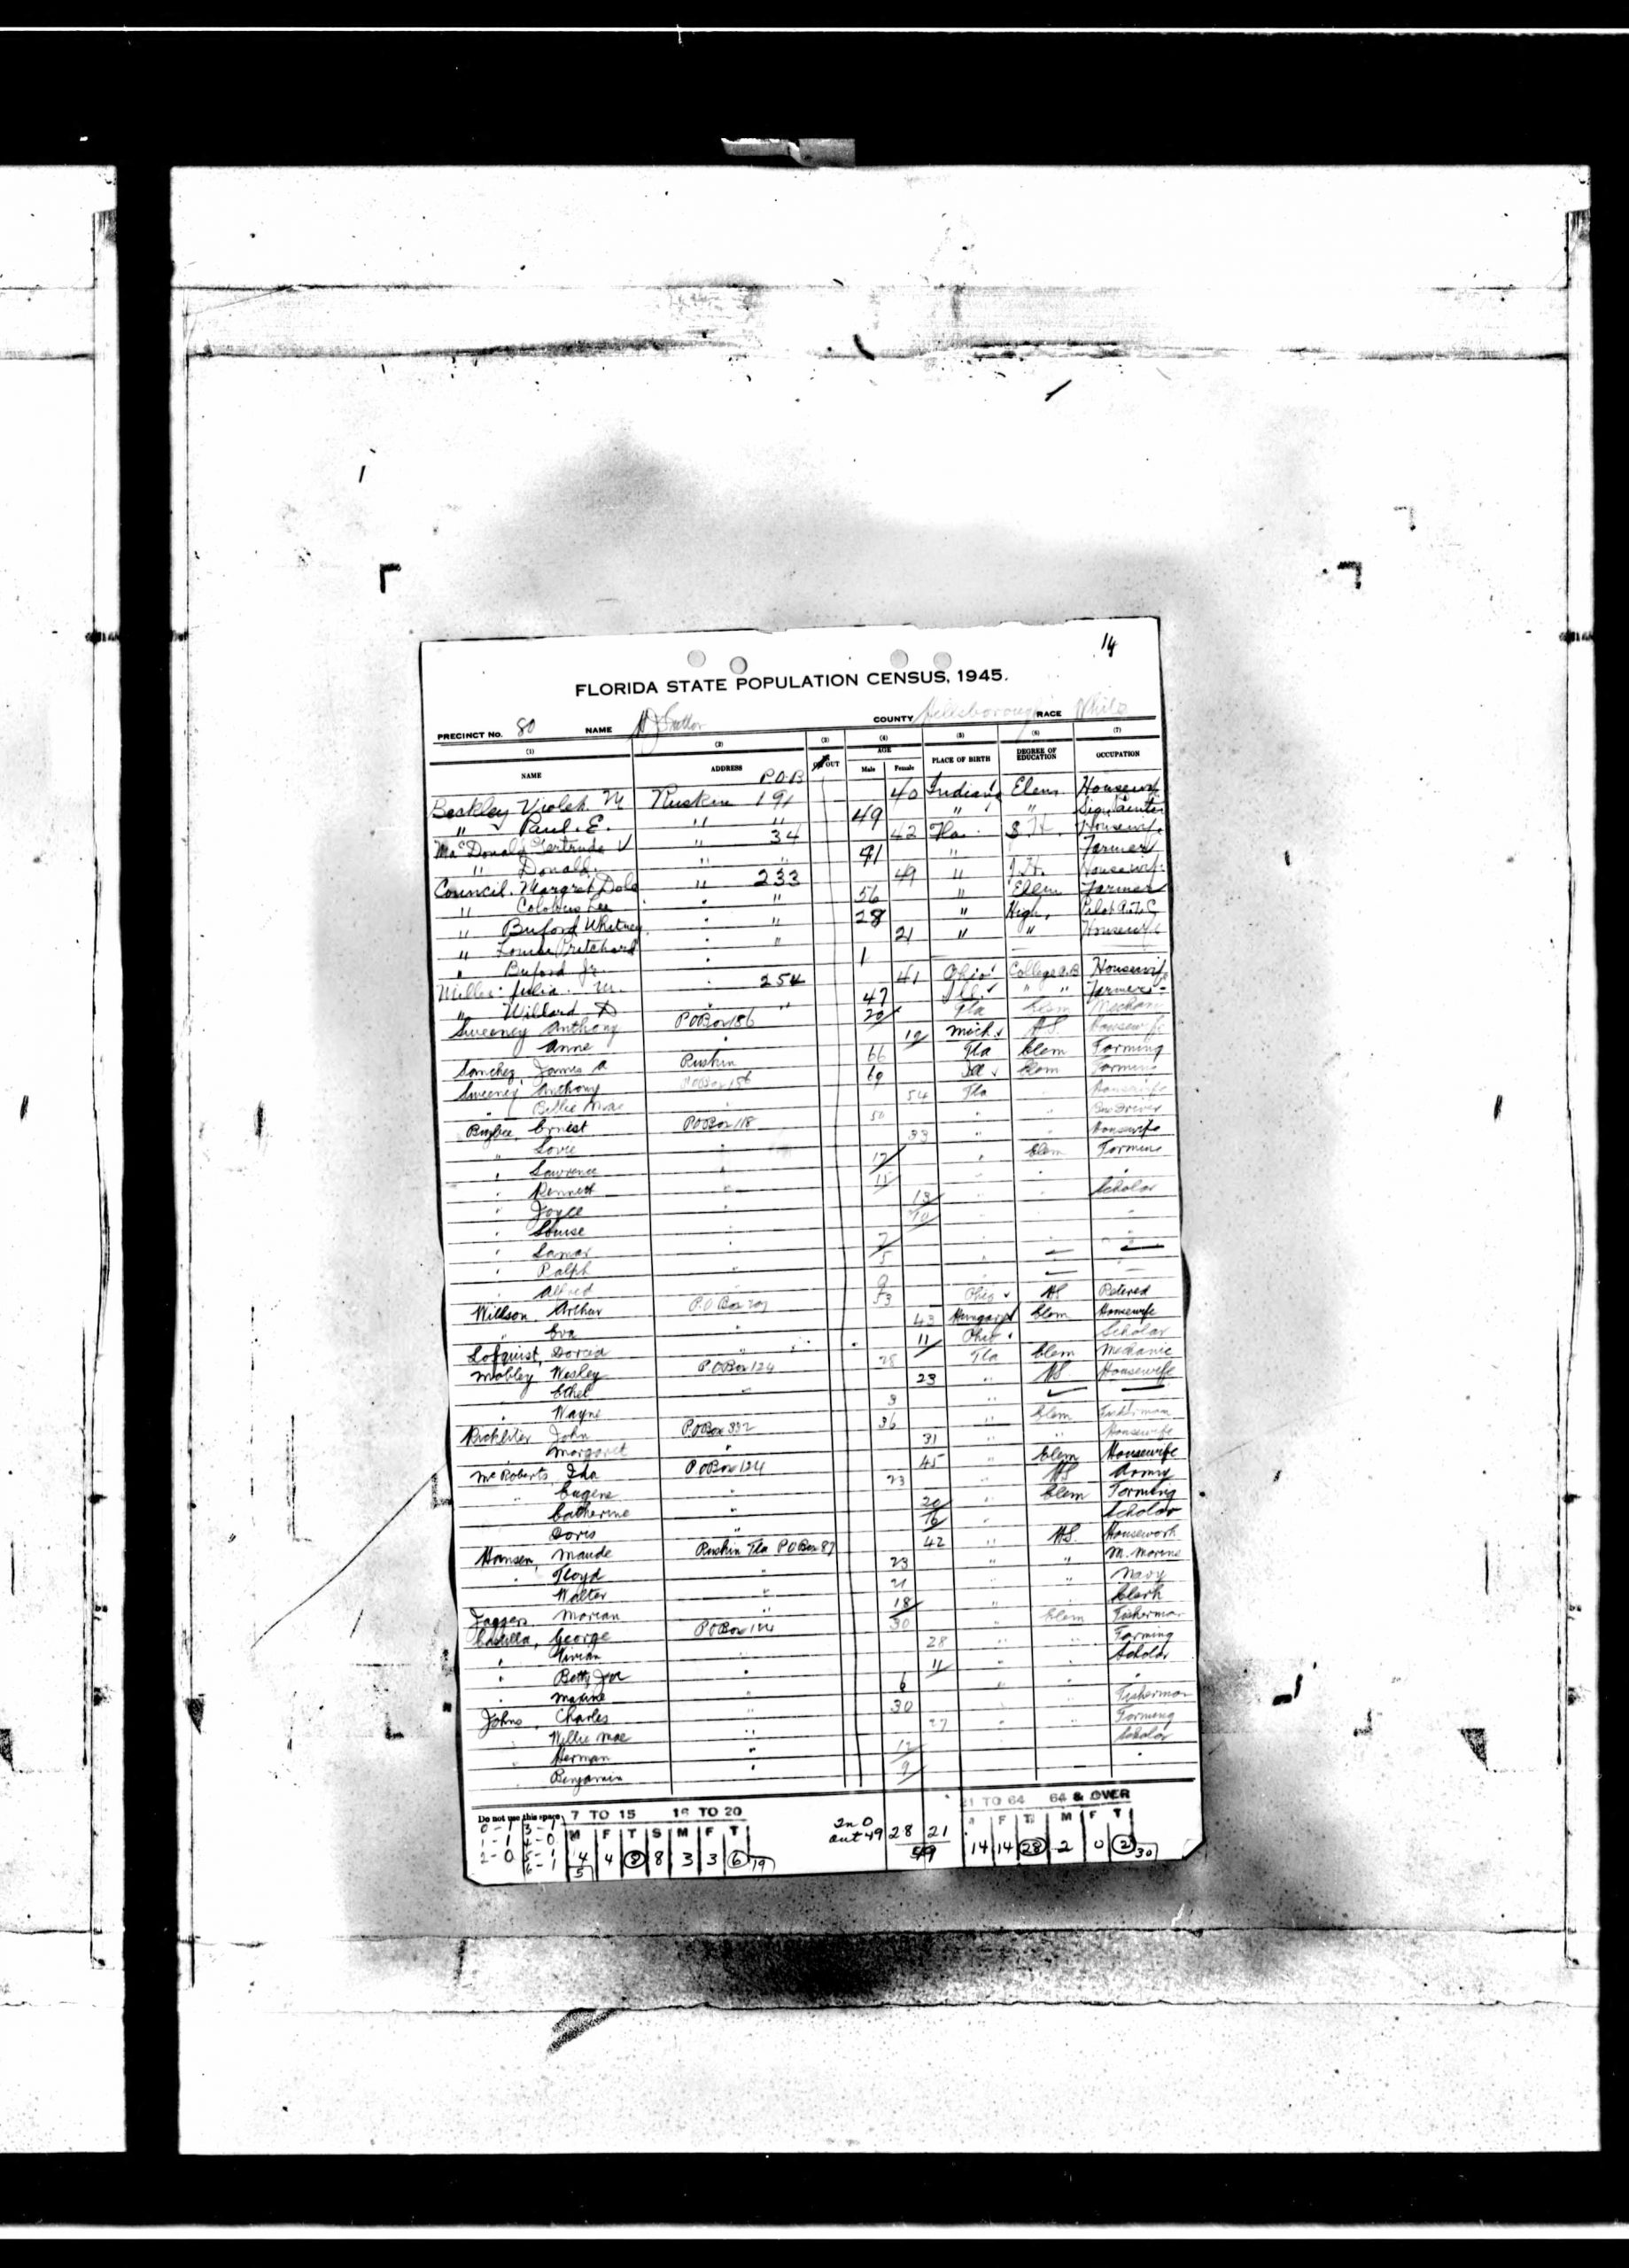 14
FLORIDA STATE POPULATION CENSUS, 1945.
PRECINCT No. 80 NAME COUNTY Hillsborough RACE White
(1) (2) (3) (4) (5) (6) (7)
NAME ADDRESS OUT AGE Male Female PLACE OF BIRTH DEGREE OF EDUCATION OCCUPATION
P.O.B
Beckley Violet. M Ruskin 191 40 Indiana Elem Housewife
" Paul. E. " " 49 " " Sign Painter
MacDonald Gertrude V " 34 42 Fla. S H. Housewife
" Donald. " " 41 " Farmer
Council. Margret Dole " 233 49 " J.H. Housewife
" Colobus Lee " " 56 " Elem Farmer
" Buford Whitney " " 28 " High.
" Louise Pritchard " " 21 " " Housewife
" Buford Jr. 1
Miller Julia. M. 254 41 Ohio College A.B Housewife
" Willard D " " 47 Ill. " " Farmer
Sweeney Anthony PO Box 186 20 Fla Elem Mechanic
Anne " 19 Mich HS Housewife
Sanchez, James A Ruskin 66 Fla Elem Farming
Sweeney Anthony PO Box 186 69 Elem Farming
" Billie Mae " 54 Fla Housewife
Ernest PO Box 118 50 " " Driver
" Lovie " 33 " " Housewife
" Lawrence " 17 " Elem Farming
" Kennett " 15 " " "
" Joyce " 13 " " Scholar
" Louise " 10 " " "
" Lamar " 7 " " "
" Ralph " 5 "
" Alfred "
Willson, Arthur P.O Box 53 Ohio HS Retired
" Eva " 43 Hungary Elem Housewife
Lofquist, Dorcea " 11 Ohio Scholar
Mobley Wesley P.O Box 124 28 Fla Elem Mechanic
Ethel " 23 " HS Housewife
Wayne 3 "
John PO Box 332 36 " Elem Fisherman
Margaret " 31 " " Housewife
McRoberts, Ida P.O Box 124 45 " Elem Housewife
" Eugene " 23 " HS Army
Catherine " 20 " Elem Farming
Doris " 16 " Scholar
Hansen, Maude Ruskin Fla P O Box 87 42 " HS. Housework
" Floyd " 23 " " M. Marine
Walter " 21 " " Navy
Jaggers Marian " 18 " " Clerk
George PO Box 30 " Elem Fisherman
" Vivian " 28 " " Farming
" Betty Joe " 11 " " Scholar
" Maxine " 6 " "
Johns, Charles " 30 " " Fisherman
" Willie Mae " 27 " " Farming
" Herman " 12 Scholar
" Benjamin " 9 "
Do not use this space 7 TO 15 16 TO 20 21 TO 64 64 & OVER
0-1 3-1 M F T S M F T In 0 28 21 F T M F T
1-1 4-0 out 49 49
2-0 5-1 4 4 8 8 3 3 6 19 14 14 28 2 0 2 30
6-1 5